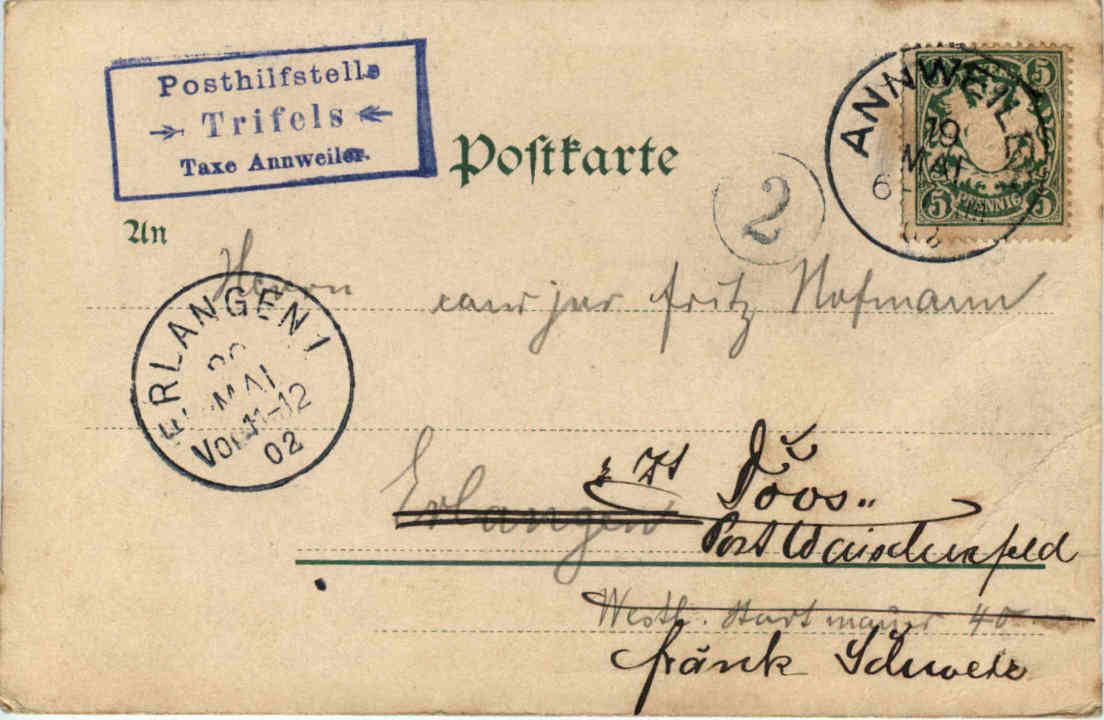 Posthilfstelle
Trifels
Taxe Annweiler.
Postkarte
ANNWEILER
19
MAI
6
5 5
PFENNIG
5 5
2
An
Herrn cand jur Fritz Hofmann
ERLANGEN 1
MAI
Vor. 11-12
02
z Zt Doos
Erlangen
Post Waischenfeld
Westl. Stadtmauer 40
fränk Schweiz